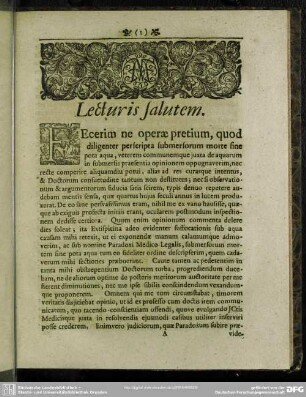 (1)
Lecturis salutem.
FEcerim ne operæ pretium, quod
diligenter perscripta submersorum morte sine
pota aqua, veterem communemque juxta de aquarum
in submersis præsentia opinionem oppugnaverim, nec
recte comperire aliquandiu potui, alias ad res curasque intentus,
& Doctorum consuetudine tantum non destitutus; nec si observatio-
num & argumentorum fiducia satis scirem, typis denuo repetere au-
debam mentis sensa, quæ quatuor hujus seculi annus in lucem produ-
xerat. De eo sane persvasissimus eram, nihil me ex vana hausisse, quæ-
que ab exiguis profecta initiis erant, oculatem postmodum inspectio-
nem dedisse certiora. Quam enim opinionum commenta delere
dies solet, ita Evisceratio adeo evidenter suffocationis sub aqua
causam mihi reserat, ut ei exponendæ manum calamumque admo-
verim, ac sub nomine Paradoxi Medico Legalis, submersorum mor-
tem sine pota aqua tum eo fideliter ordine descripserim, quem cada-
verum mihi sectiones probarunt. Caute tamen ac pedetentim in
tanta mihi obstrepentium Doctorum turba, progrediendum duce-
bam, ne de aliorum optime de posteris meritorum authoritate per me
fierent diminutiones, nec me ipse sibilis conscindendum vexandum-
que proponerem. Omnem qui me tum circumstabat, timorem
veritatis susceptabat opinio, ut id ex professo cum doctis item commu-
nicarem, quo racendo conscientiam offendi, quove evulgando JCtis
Medicisque juxta in resolvendis ejusmodi casibus utiliter inserviri
posse crederem. Enimvero judiciorum, quæ Paradoxum subire præ-
A vide-